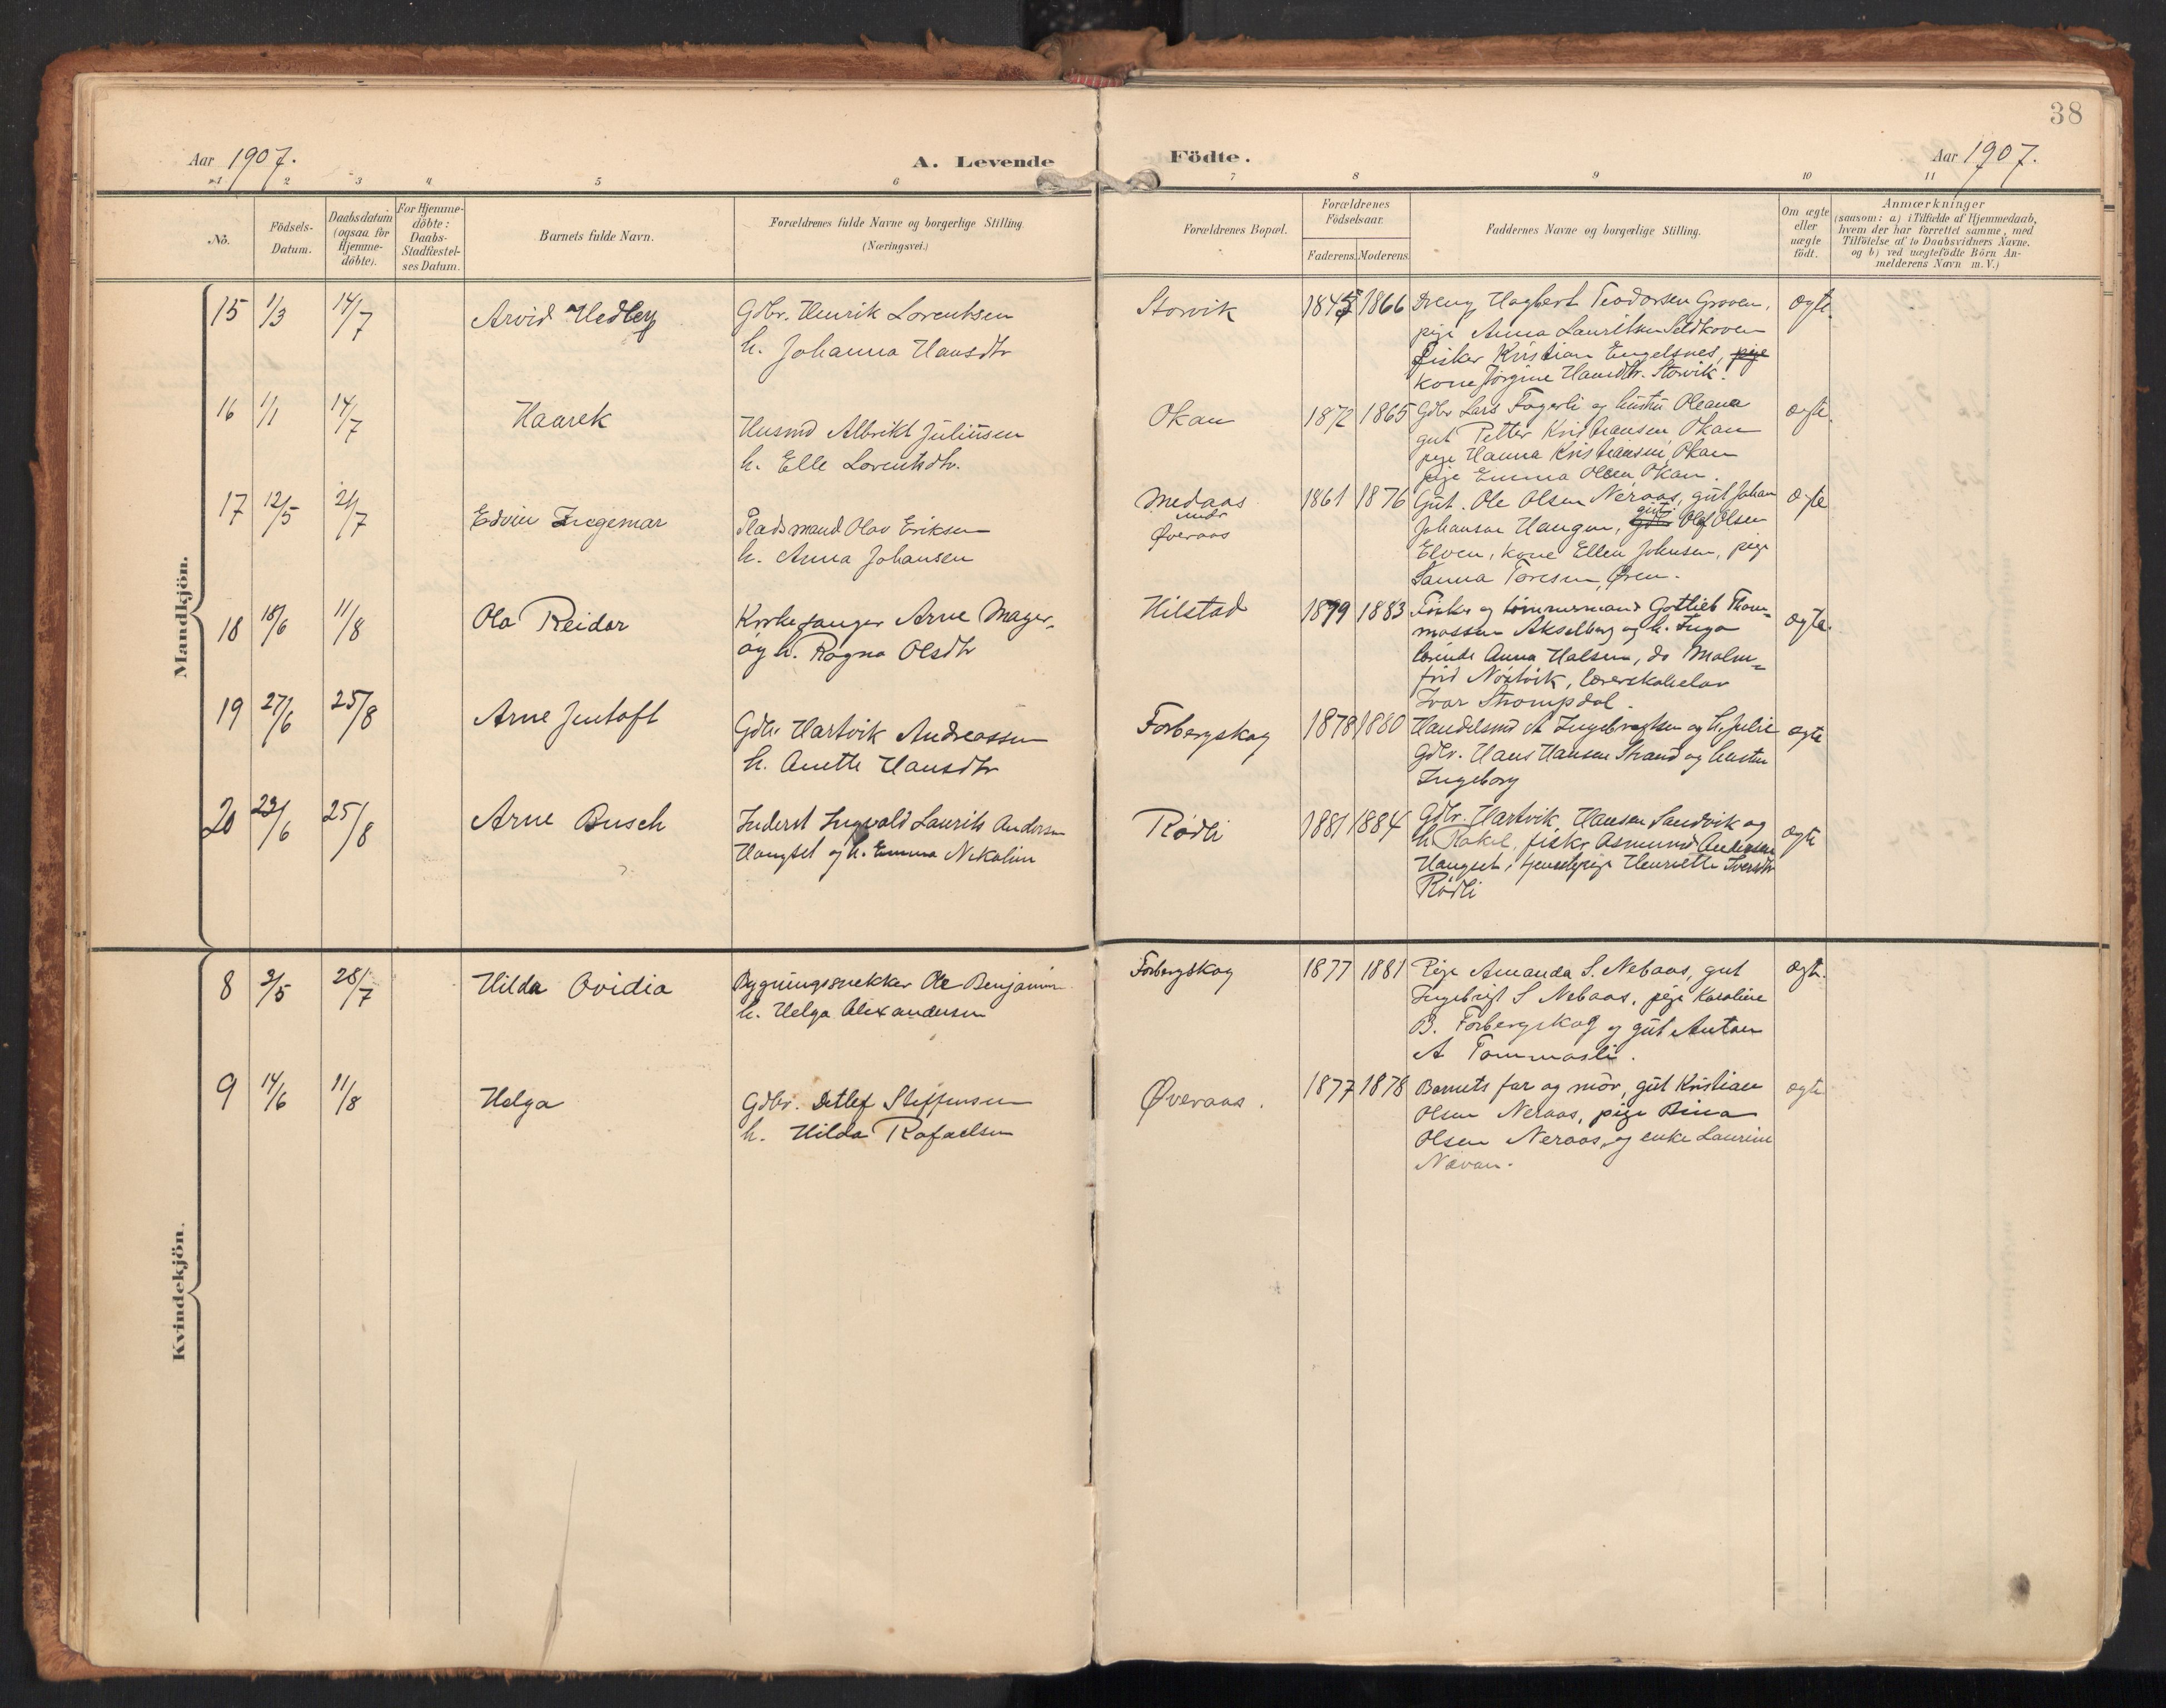 38
Aar 1907.
A. Levende
Födte.
Aar 1907.
1 2 3 4 5 6 7 8 9 10 11
No.
Födsels-
Datum.
Daabsdatum
(ogsaa for
Hjemme-
döbte).
For Hjemme-
döbte:
Daabs-
Stadfæstel-
ses Datum.
Barnets fulde Navn.
Forældrenes fulde Navne og borgerlige Stilling
(Næringsvei.)
Forældrenes Bopæl.
Forældrenes
Födselsaar.
Faderens. Moderens.
Faddernes Navne og borgerlige Stilling.
Om ægte
eller
uægte
födt.
Anmærkninger
(saasom: a) i Tilfælde af Hjemmedaab,
hvem der har forrettet samme, med
Tilföielse af to Daabsvidners Navne.
og b) ved uægtefödte Börn An-
melderens Navn m.V.)
Mandkjön.
15 1/3 14/7 Arvid Hedley
Gdbr. Henrik Lorentsen
h. Johanna Hansdtr
Storvik 1866
Dreng Hagbert Teodorsen Groven,
pige Anna Lauritsen Seldkoven
fisker Kristian Engelsnes, pige
kone Jørgine Hansdtr. Storvik.
ægte.
16 1/1 14/7 Haarek
Husmd Albrikt Juliusen
h. Elle Lorentsdtr.
Okan 1872 1865
Gdbr Lars Fagerli og hustru Oleana
gut Petter Kristiansen, Okan
pige Hanna Kristiansen, Okan
pige Emma Olsen, Okan.
ægte.
17 12/5 21/7 Edvin Ingemar
Pladsmand Olav Eriksen
h. Anna Johansen
Medaas
under
Øveraas
1861 1876
Gut. Ole Olsen Neraas, gut Johan
Johansen Haugen, gut Olaf Olsen
Elven, kone Ellen Johnsen, pige
Sanna Toresen, Øren.
ægte
18 18/6 11/8 Ola Reidar
Kirkesanger Arne Mager-
øy h. Ragna Olsdtr
Hilstad 1879 1883
Fisker og tømmermand Gottlieb Thom-
massen Akselberg og h. Inga
lærinde Anna Halsen, do Malm-
frid Nørtvik, lærerskoleelev
Ivar Strompdal.
ægte.
19 27/6 25/8 Arne Jentoft
Gdbr Hartvik Andreassen
h. Anette Hansdtr
Forbergskog 1878 1880
Handelsmd A Ingebrigtsen og h. Julie
Gdbr. Hans Hansen Strand og hustru
Ingeborg
ægte
20 23/6 25/8 Arne Busch
Inderst Ingvald Laurits Andersen
Haugset og h. Emma Nikoline
Rødli 1881 1884
Gdbr. Hartvik Hansen Sandvik og
h. Rakel, fisker Asmund Andersen
Haugset, tjenestepige Henriette Iversdtr
Rødli
ægte
Kvindekjön.
8 2/5 28/7 Hilda Ovidia
Bygningssnekker Ole Benjamin
h. Helga Alexandersen
Forbergskog 1877 1881
Pige Amanda S. Nebaas, gut
Ingebrigt S Nebaas, pige Karoline
B. Forbergskog og gut Anton
A Tommasli.
ægte.
9 14/6 11/8 Helga
Gdbr. Detlef Steffensen
h. Hilda Rafaelsen
Øveraas. 1877 1878
Barnets far og mor, gut Kristian
Olsen Neraas, pige Bina
Olsen Neraas, og enke Laurine
Nævan.
ægte